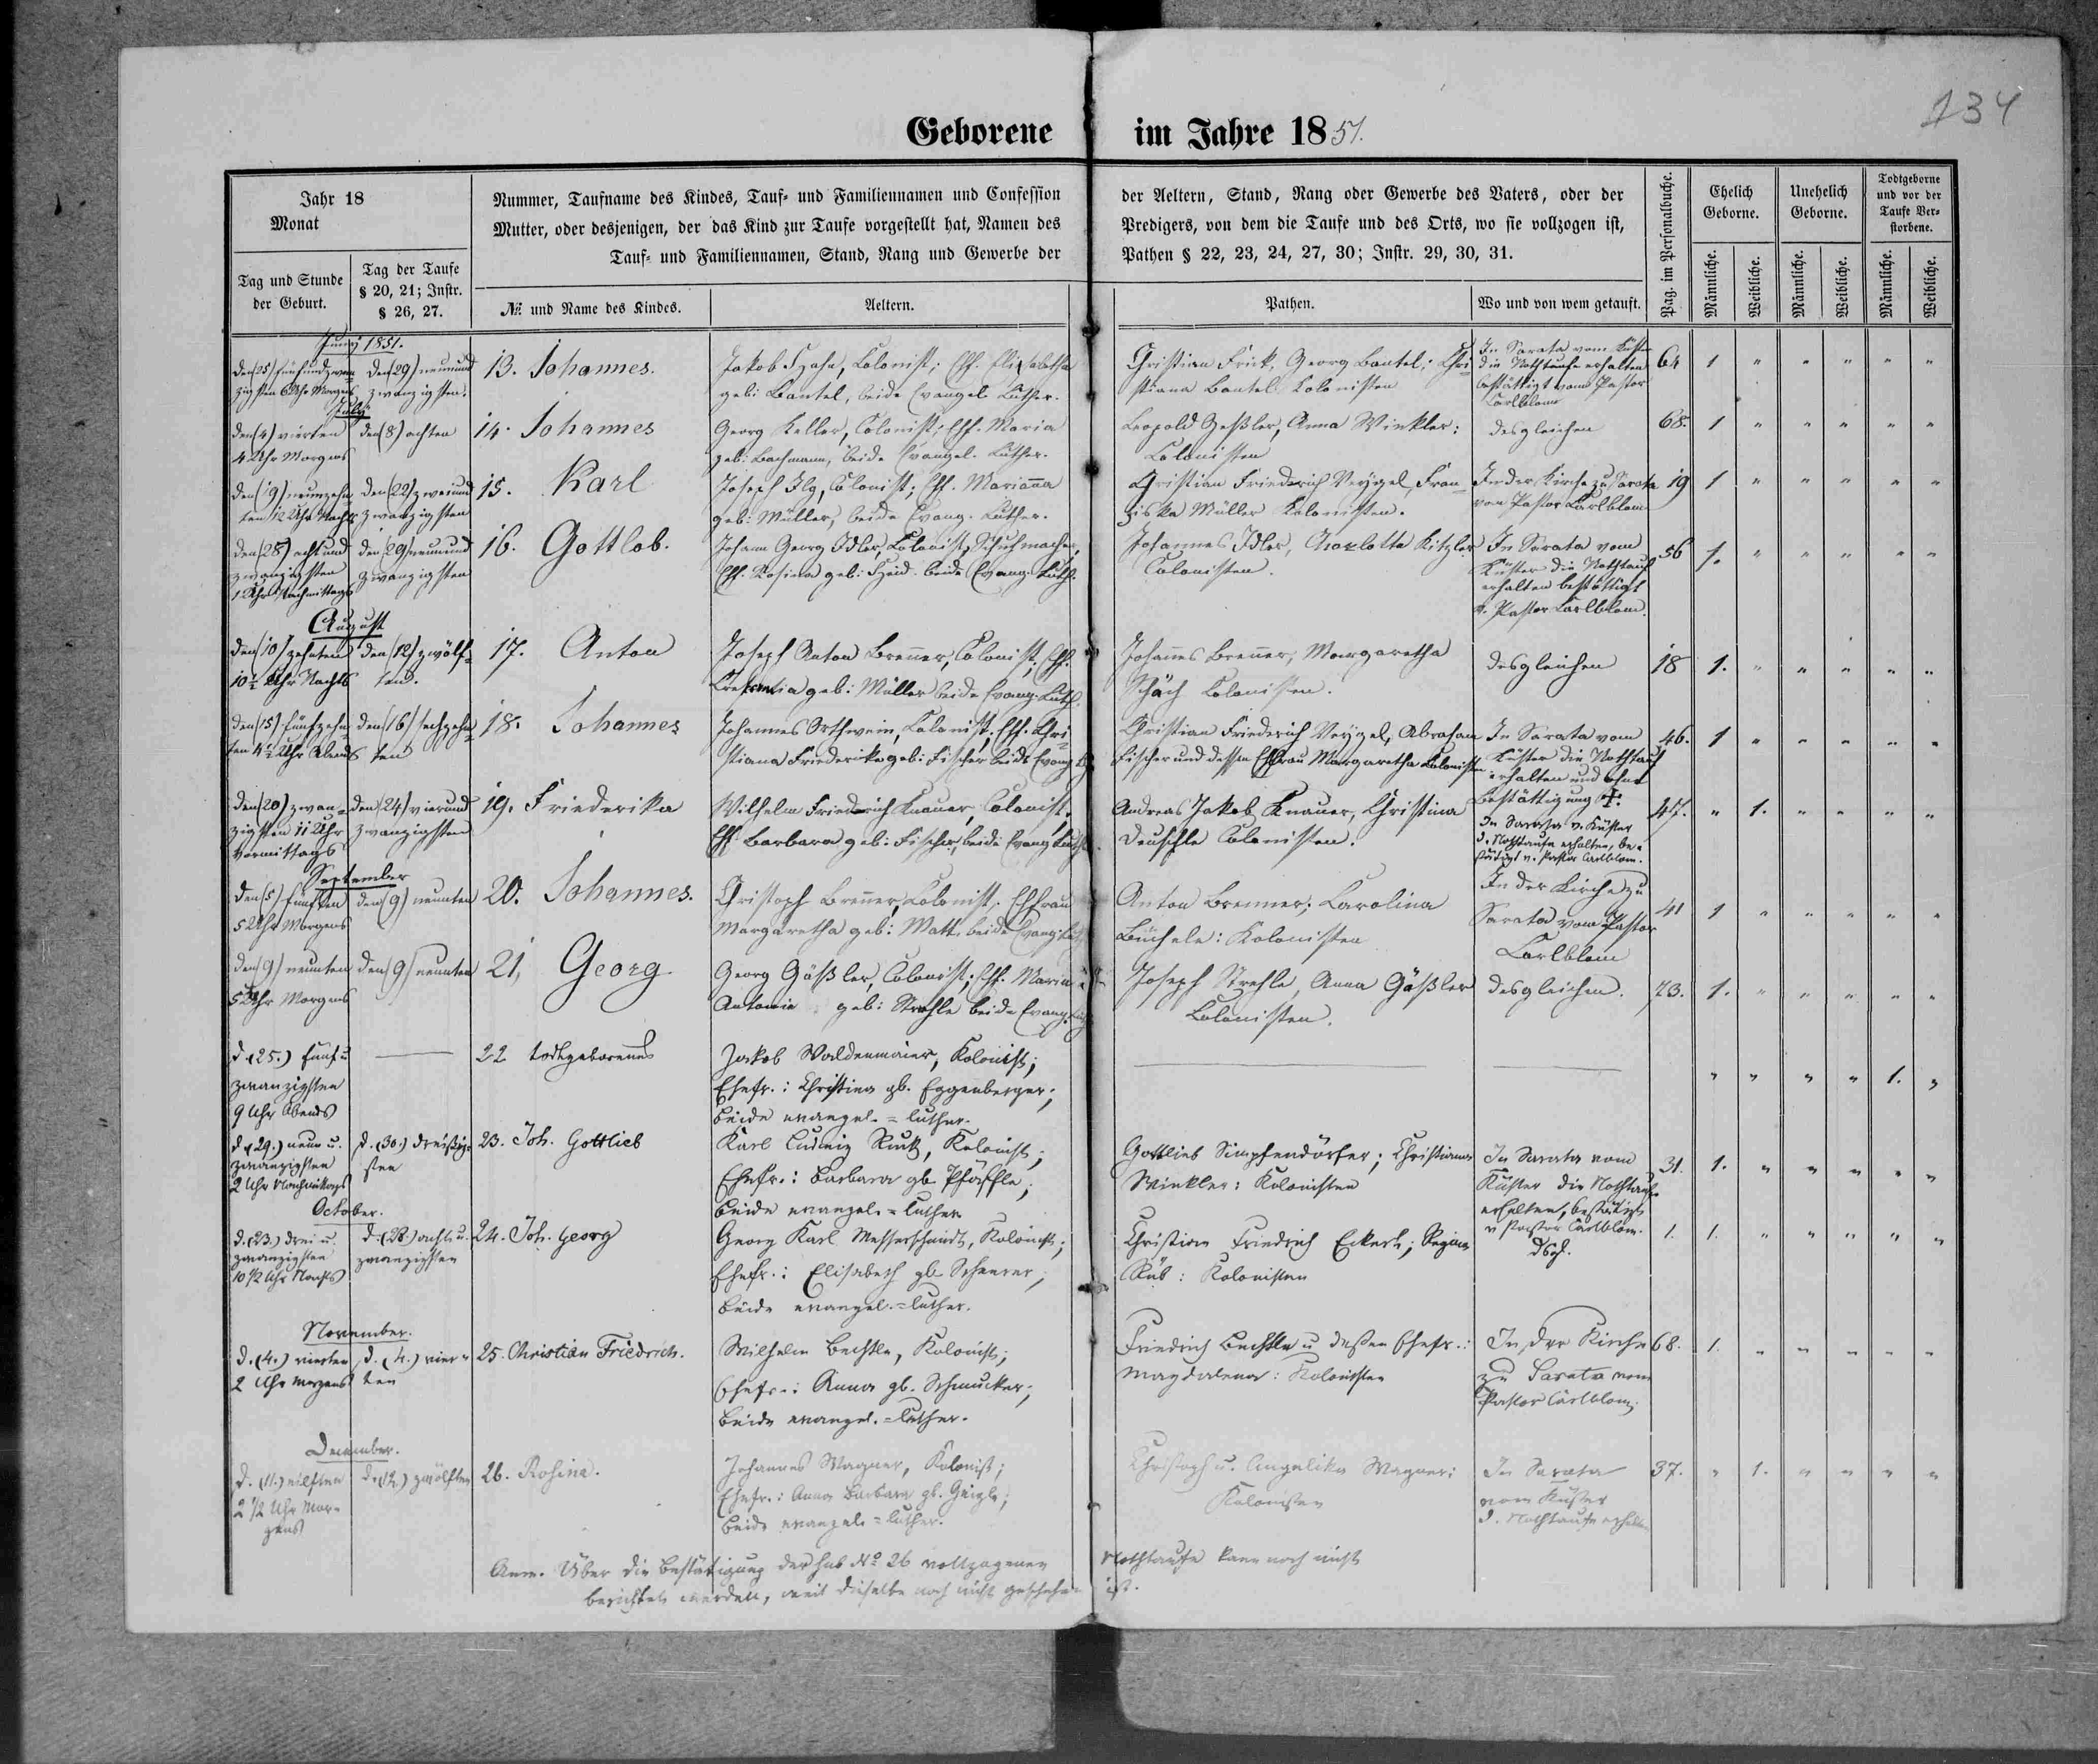 134
Geborene im Jahre 1851.
Jahr 18
Monat
Tag und Stunde
der Geburt.
Tag der Taufe
§ 20, 21; Instr.
§ 26, 27.
Nummer, Taufname des Kindes, Tauf- und Familiennamen und Confession
Mutter, oder desjenigen, der das Kind zur Taufe vorgestellt hat, Namen des
Tauf- und Familiennamen, Stand, Rang und Gewerbe der
№ und Name des Kindes.
Aeltern.
der Aeltern, Stand, Rang oder Gewerbe des Vaters, oder der
Predigers, von dem die Taufe und des Orts, wo sie vollzogen ist,
Pathen § 22, 23, 24, 27, 30; Instr. 29, 30, 31.
Pathen.
Wo und von wem getauft.
Pag. im Personalbuche.
Ehelich
Geborne.
Unehelich
Geborne.
Todtgeborne
und vor der
Taufe Ver-
storbene.
Männliche.
Weibliche.
Männliche.
Weibliche.
Männliche.
Weibliche.
Juny 1851.
den (25) fünfundzwan-
zigsten 6 Uhr Morgens
den (29) neunund
zwanzigsten.
13. Johannes.
Jakob Hahn, Colonist; Ehf. Elisabetha
geb: Bantel, beide Evangel. Luther.
Christian Frick, Georg Bantel; Chri-
stiana Bantel Kolonisten
In Sarata vom Küster
die Nothtaufe erhalten
bestättigt vom Pastor
Carlblom
64 1 " " " " "
July
den (4) vierten
4 Uhr Morgens
den (8) achten
14. Johannes
Georg Keller, Colonist; Ehf. Maria
geb: Bachmann, beide Evangel. Luther.
Leopold Geßler, Anna Winkler:
Colonisten
desgleichen
68. 1 " " " " "
den (19) neunzehn
ten 12 Uhr Nachts
den (22) zweiund
zwanzigsten
15. Karl
Joseph Ilg, Colonist; Ehf. Marianna
geb: Müller, beide Evang. Luther.
Christian Friedrich Veygel, Fran-
ziska Müller Kolonisten.
In der Kirche zu Sarata
von Pastor Carlblom
19 1 " " " " "
den (28) achtund
zwanzigsten
1 Uhr Nachmittags
den (29) neunund
zwanzigsten
16. Gottlob.
Johann Georg Idler, Colonist, Schuhmacher,
Ehf. Rosina geb: Heid. beide Evang. Luth.
Johannes Idler, Charlotta Kitzler
Colonisten.
In Sarata vom
Küster die Nothtauf
erhalten bestättigt
v. Pastor Carlblom.
56 1. " " " " "
August
den (10) zehnten
10½ Uhr Nachts
den (12) zwölf-
ten.
17. Anton
Joseph Anton Brenner, Colonist, Ehf.
Kresentia geb: Müller beide Evang. Luth.
Johannes Brenner, Margaretha
Schäch Colonisten.
desgleichen
18 1. " " " " "
den (15) fünfzehn-
ten 4½ Uhr Abends
den (16) sechzehn-
ten
18. Johannes
Johannes Orthwein, Colonist, Ehf. Chri-
stiana Friederike geb: Fischer beide Evang.
Christian Friederich Veygel, Abraham
Fischer und dessen Ehfrau Margaretha Colonisten
In Sarata vom
Küster die Nothtauf
erhalten und ohne
Bestättigung †.
46. 1 " " " " "
den (20) zwan-
zigsten 11 Uhr
Vormittags
den (24) vierund
zwanzigsten
19. Friederika
Wilhelm Friedrich Knauer, Colonist,
Ehf. Barbara geb: Fischer, beide Evang. Luth.
Andreas Jakob Knauer, Christina
Deuschle Colonisten.
In Sarata v. Küster
d. Nothtaufe erhalten, be-
stätigt v. Pastor Carlblom.
47. " 1. " " " "
September
den (5) fünften
5 Uhr Morgens
den (9) neunten
20. Johannes.
Christoph Brenner, Colonist, Ehfrau
Margaretha geb: Matt, beide Evang. Luth
Anton Brenner; Karolina
Büchele: Kolonisten
In der Kirche zu
Sarata vom Pastor
Carlblom
41 1 " " " " "
den (9) neunten
5 Uhr Morgens
den (9) neunten
21, Georg
Georg Gäßler, Colonist; Ehf. Maria
Antonie geb: Strehle beide Evang.
Joseph Strehle, Anna Gäßler
Colonisten.
desgleichen.
73. 1. " " " " "
d. (25.) fünf u
zwanzigsten
9 Uhr Abends
22 todtgeborenes
Jakob Waldenmaier, Kolonist;
Ehefr.: Christina gb. Eggenberger;
beide evangel.=luther.
" " " " 1. "
d. (29.) neun u.
zwanzigsten
2 Uhr Nachmittags
d. (30.) dreißig-
sten
23. Joh. Gottlieb
Karl Ludwig Ruck, Kolonist;
Ehefr.: Barbara gb. Pfäffle;
beide evangel.=luther
Gottlieb Simpfendörfer; Christiana
Winkler: Kolonisten
In Sarata vom
Küster die Nothtaufe
erhalten, bestätigt
v Pastor Carlblom.
31. 1. " " " " "
October.
d. (23.) drei u.
zwanzigsten
10 1/2 Uhr Nachts
d. (28.) acht u.
zwanzigsten
24. Joh. Georg
Georg Karl Messerschmidt, Kolonist;
Ehefr.: Elisabeth gb Scheerer;
beide evangel.=luther.
Christian Friedrich Eckert; Regina
Rüb: Kolonisten
dsgl.
1. 1. " " " " "
November.
d. (4.) vierten
2 Uhr Morgens
d. (4.) vier-
ten
25. Christian Friedrich.
Wilhelm Bechtle, Kolonist;
Ehefr.: Anna gb. Schmucker;
beide evangel.=luther.
Friedrich Bechtle u dessen Ehefr.:
Magdalena: Kolonisten
In der Kirche
zu Sarata vom
Pastor Carlblom.
68. 1. " " " " "
December.
d. (11.) eilften
2 1/2 Uhr Mor-
gens
d. (12.) zwölften
26. Rosina.
Johannes Wagner, Kolonist;
Ehefr.: Anna Barbara gb. Geigle;
beide evangel.=luther.
Christoph u. Angelika Wagner:
Kolonisten
In Sarata
vom Küster
d. Nothtaufe erhalten
37. " 1. " " " "
Anm. Über die Bestätigung der sub No 26 vollzogenen Nothtaufe kann noch nicht
berichtet werden, weil dieselbe noch nicht geschehen ist.